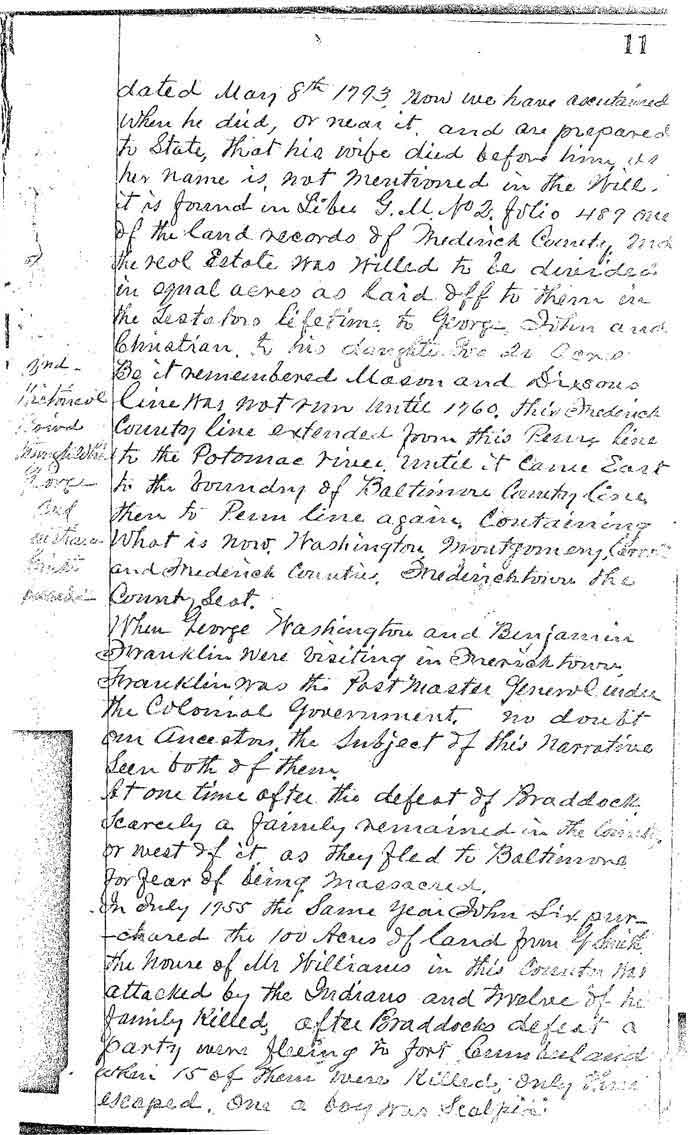 11
dated May 8th 1793. Now we have ascertained
When he died, or near it, and are prepared
to State, that his wife died before him, as
her name is not mentioned in the Will.
it is found in Liber G. M. No 2. folio 489 one
of the land records of Frederick County,
the real Estate was willed to be divided
in equal acres as laid off to them in
the Testators lifetime, to George, John and
Christian, to his daughter
Be it remembered Mason and Dixons
line was not run until 1760. this Frederick
County line extended from this Penn line
to the Potomac river, until it came East
to the boundry of Baltimore County line
then to Penn line again. Containing
What is now, Washington, Montgomery, Carroll
and Frederick Counties, Fredericktown the
County Seat.
2nd
Historical
and
When George Washington and Benjamin
Franklin were visiting in Fredericktown,
Franklin was the Post Master General under
the Colonial Government. no doubt
our Ancestor, the Subject of this Narrative
Seen both of them.
At one time after the defeat of Braddock
Scarcely a family remained in the County,
or west of it as they fled to Baltimore
for fear of being Massacred.
In July 1755 the Same Year John Six pur-
-chared the 100 Acres of land from Smith
the house of Mr Williams in this County was
attacked by the Indians and twelve of his
family Killed, after Braddocks defeat a
party were fleeing to fort Cumberland
when 15 of them were Killed, only three
escaped. One a boy was Scalped.